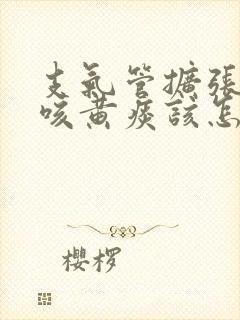 支氣管擴張
咳黃痰該怎
櫻椤